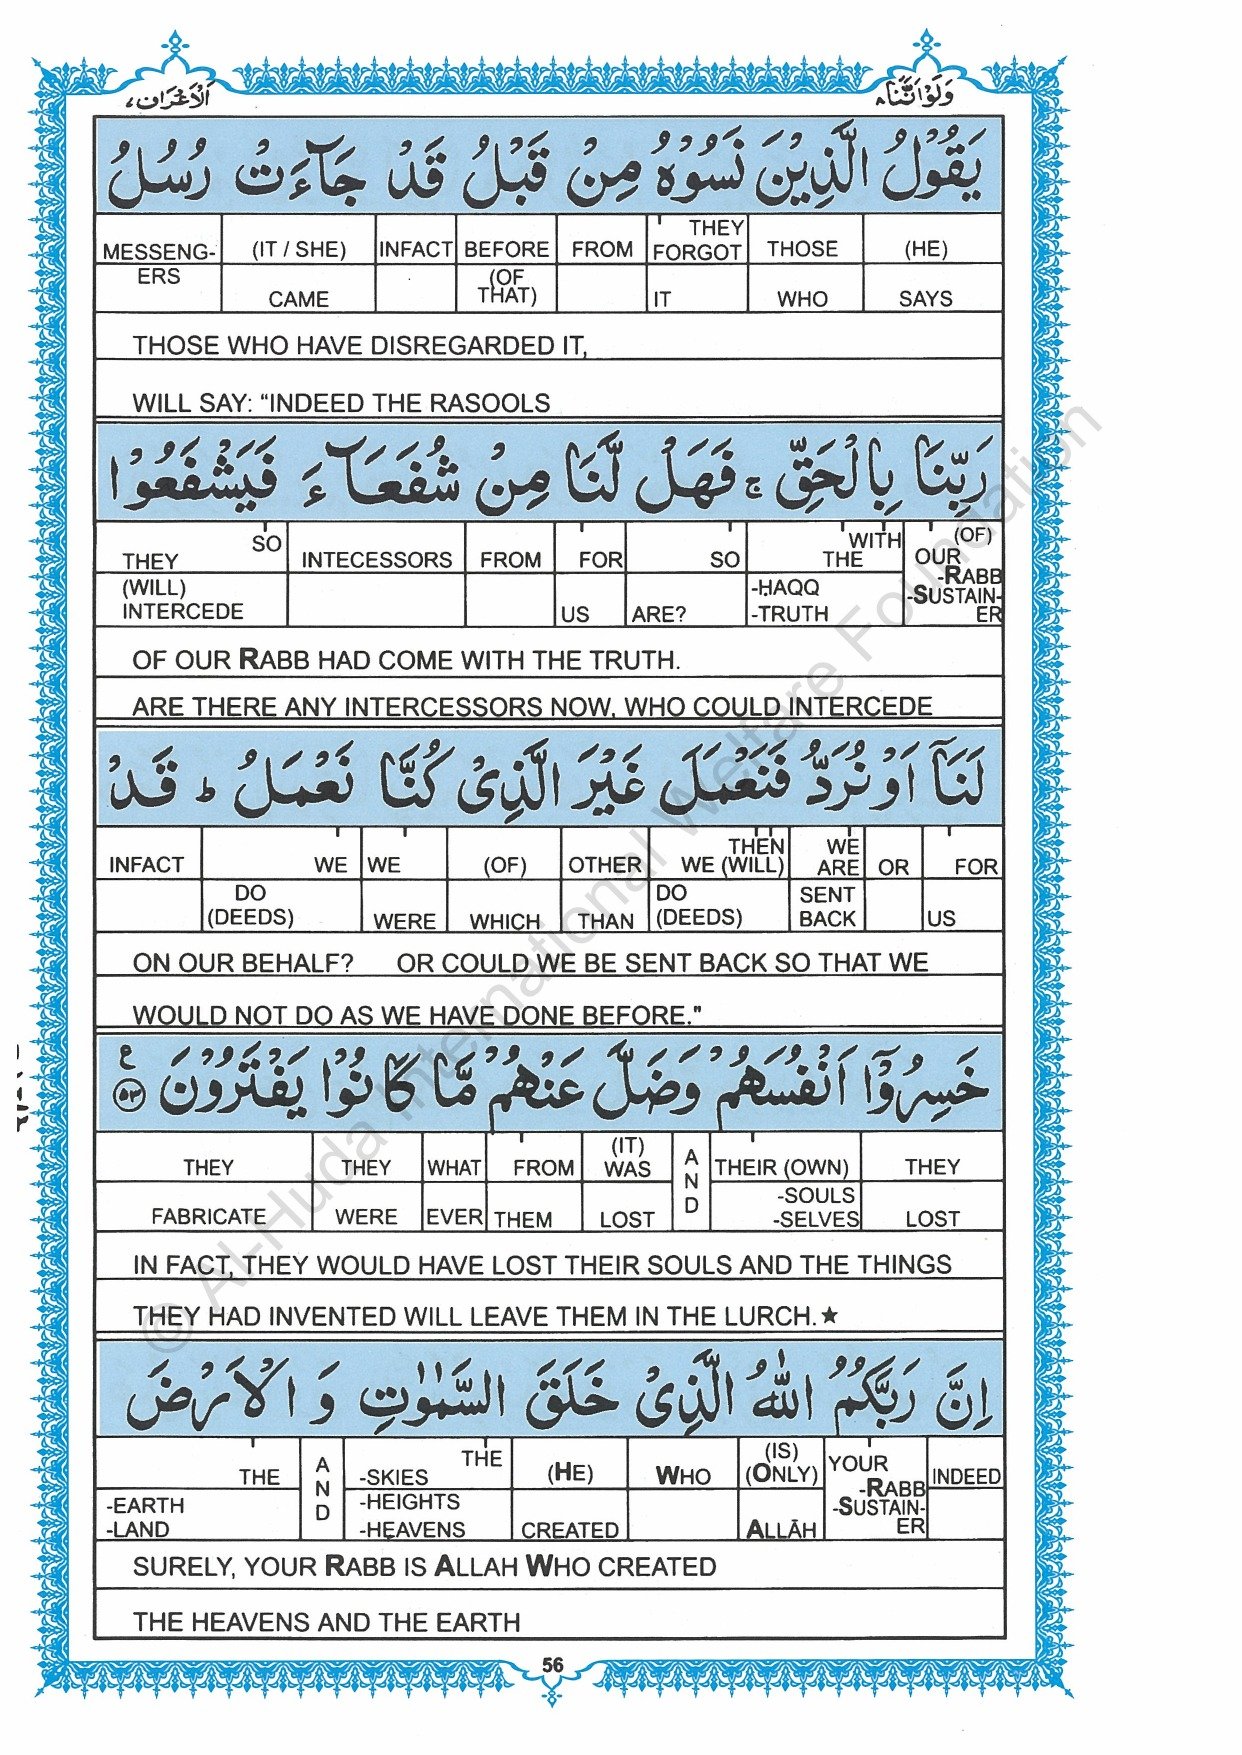 وَلَوْ اَنَّنَا ٨
اَلْاَعْرَاف ٧
يَقُوْلُ الَّذِيْنَ نَسُوْهُ مِنْ قَبْلُ قَدْ جَآءَتْ رُسُلُ
MESSENG- (IT / SHE) INFACT BEFORE FROM THEY FORGOT THOSE (HE)
ERS CAME (OF THAT) IT WHO SAYS
THOSE WHO HAVE DISREGARDED IT,
WILL SAY: “INDEED THE RASOOLS
رَبِّنَا بِالْحَقِّ ۚ فَهَلْ لَّنَا مِنْ شُفَعَآءَ فَيَشْفَعُوْا
THEY SO INTECESSORS FROM FOR SO WITH THE (OF) OUR
(WILL) INTERCEDE US ARE? -ḤAQQ -TRUTH -RABB -SUSTAIN-ER
OF OUR RABB HAD COME WITH THE TRUTH.
ARE THERE ANY INTERCESSORS NOW, WHO COULD INTERCEDE
لَنَآ اَوْ نُرَدُّ فَنَعْمَلَ غَيْرَ الَّذِيْ كُنَّا نَعْمَلُ ؕ قَدْ
INFACT WE WE (OF) OTHER THEN WE (WILL) WE ARE OR FOR
DO (DEEDS) WERE WHICH THAN DO (DEEDS) SENT BACK US
ON OUR BEHALF? OR COULD WE BE SENT BACK SO THAT WE
WOULD NOT DO AS WE HAVE DONE BEFORE."
خَسِرُوْٓا اَنْفُسَهُمْ وَضَلَّ عَنْهُمْ مَّا كَانُوْا يَفْتَرُوْنَ ع ٥٣
THEY THEY WHAT FROM (IT) WAS AND THEIR (OWN) THEY
FABRICATE WERE EVER THEM LOST -SOULS -SELVES LOST
IN FACT, THEY WOULD HAVE LOST THEIR SOULS AND THE THINGS
THEY HAD INVENTED WILL LEAVE THEM IN THE LURCH.★
اِنَّ رَبَّكُمُ اللّٰهُ الَّذِيْ خَلَقَ السَّمٰوٰتِ وَ الْاَرْضَ
THE AND THE -SKIES (HE) WHO (IS) (ONLY) YOUR INDEED
-EARTH -LAND -HEIGHTS -HEAVENS CREATED ALLĀH -RABB -SUSTAIN-ER
SURELY, YOUR RABB IS ALLAH WHO CREATED
THE HEAVENS AND THE EARTH
56
© Al-Huda International Welfare Foundation